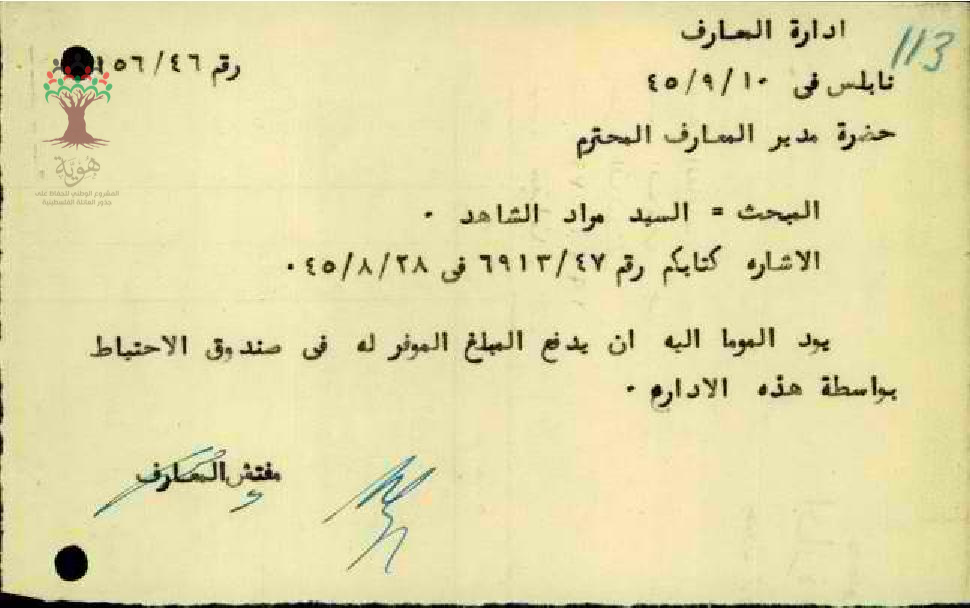 113
ادارة المعارف
رقم ١٥٦/٤٦
نابلس فى ٤٥/٩/١٠
حضرة مدير المعارف المحترم
هوية
المشروع الوطني للحفاظ على
جذور العائلة الفلسطينية
المبحث = السيد مراد الشاهد ٠
الاشاره كتابكم رقم ٦٩١٣/٤٧ فى ٤٥/٨/٢٨٠
يود الموما اليه ان يدفع المبلغ الموفر له فى صندوق الاحتياط
بواسطة هذه الاداره ٠
مفتش المعارف